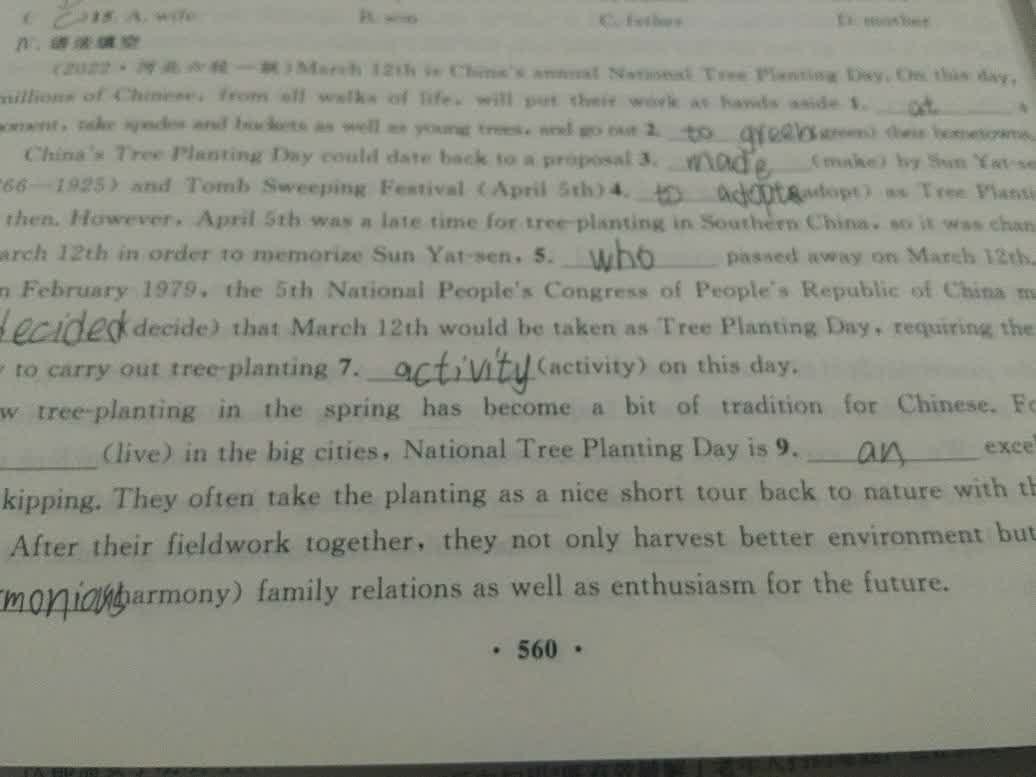 15. A. wife B. son C. father D. mother
Ⅳ. 语法填空
(2022·河北六校一联)March 12th is China's annual National Tree Planting Day. On this day,
millions of Chinese, from all walks of life, will put their work at hands aside 1. at
moment, take spades and buckets as well as young trees, and go out 2. to green (green) their hometowns.
China's Tree Planting Day could date back to a proposal 3. made (make) by Sun Yat-se
66—1925) and Tomb Sweeping Festival (April 5th) 4. to adopt (adopt) as Tree Planti
then. However, April 5th was a late time for tree-planting in Southern China, so it was chan
arch 12th in order to memorize Sun Yat-sen, 5. who passed away on March 12th,
n February 1979, the 5th National People's Congress of People's Republic of China m
decided (decide) that March 12th would be taken as Tree Planting Day, requiring the
y to carry out tree-planting 7. activity (activity) on this day.
w tree-planting in the spring has become a bit of tradition for Chinese. Fo
(live) in the big cities, National Tree Planting Day is 9. an excel
kipping. They often take the planting as a nice short tour back to nature with th
After their fieldwork together, they not only harvest better environment but
monious harmony) family relations as well as enthusiasm for the future.
· 560 ·